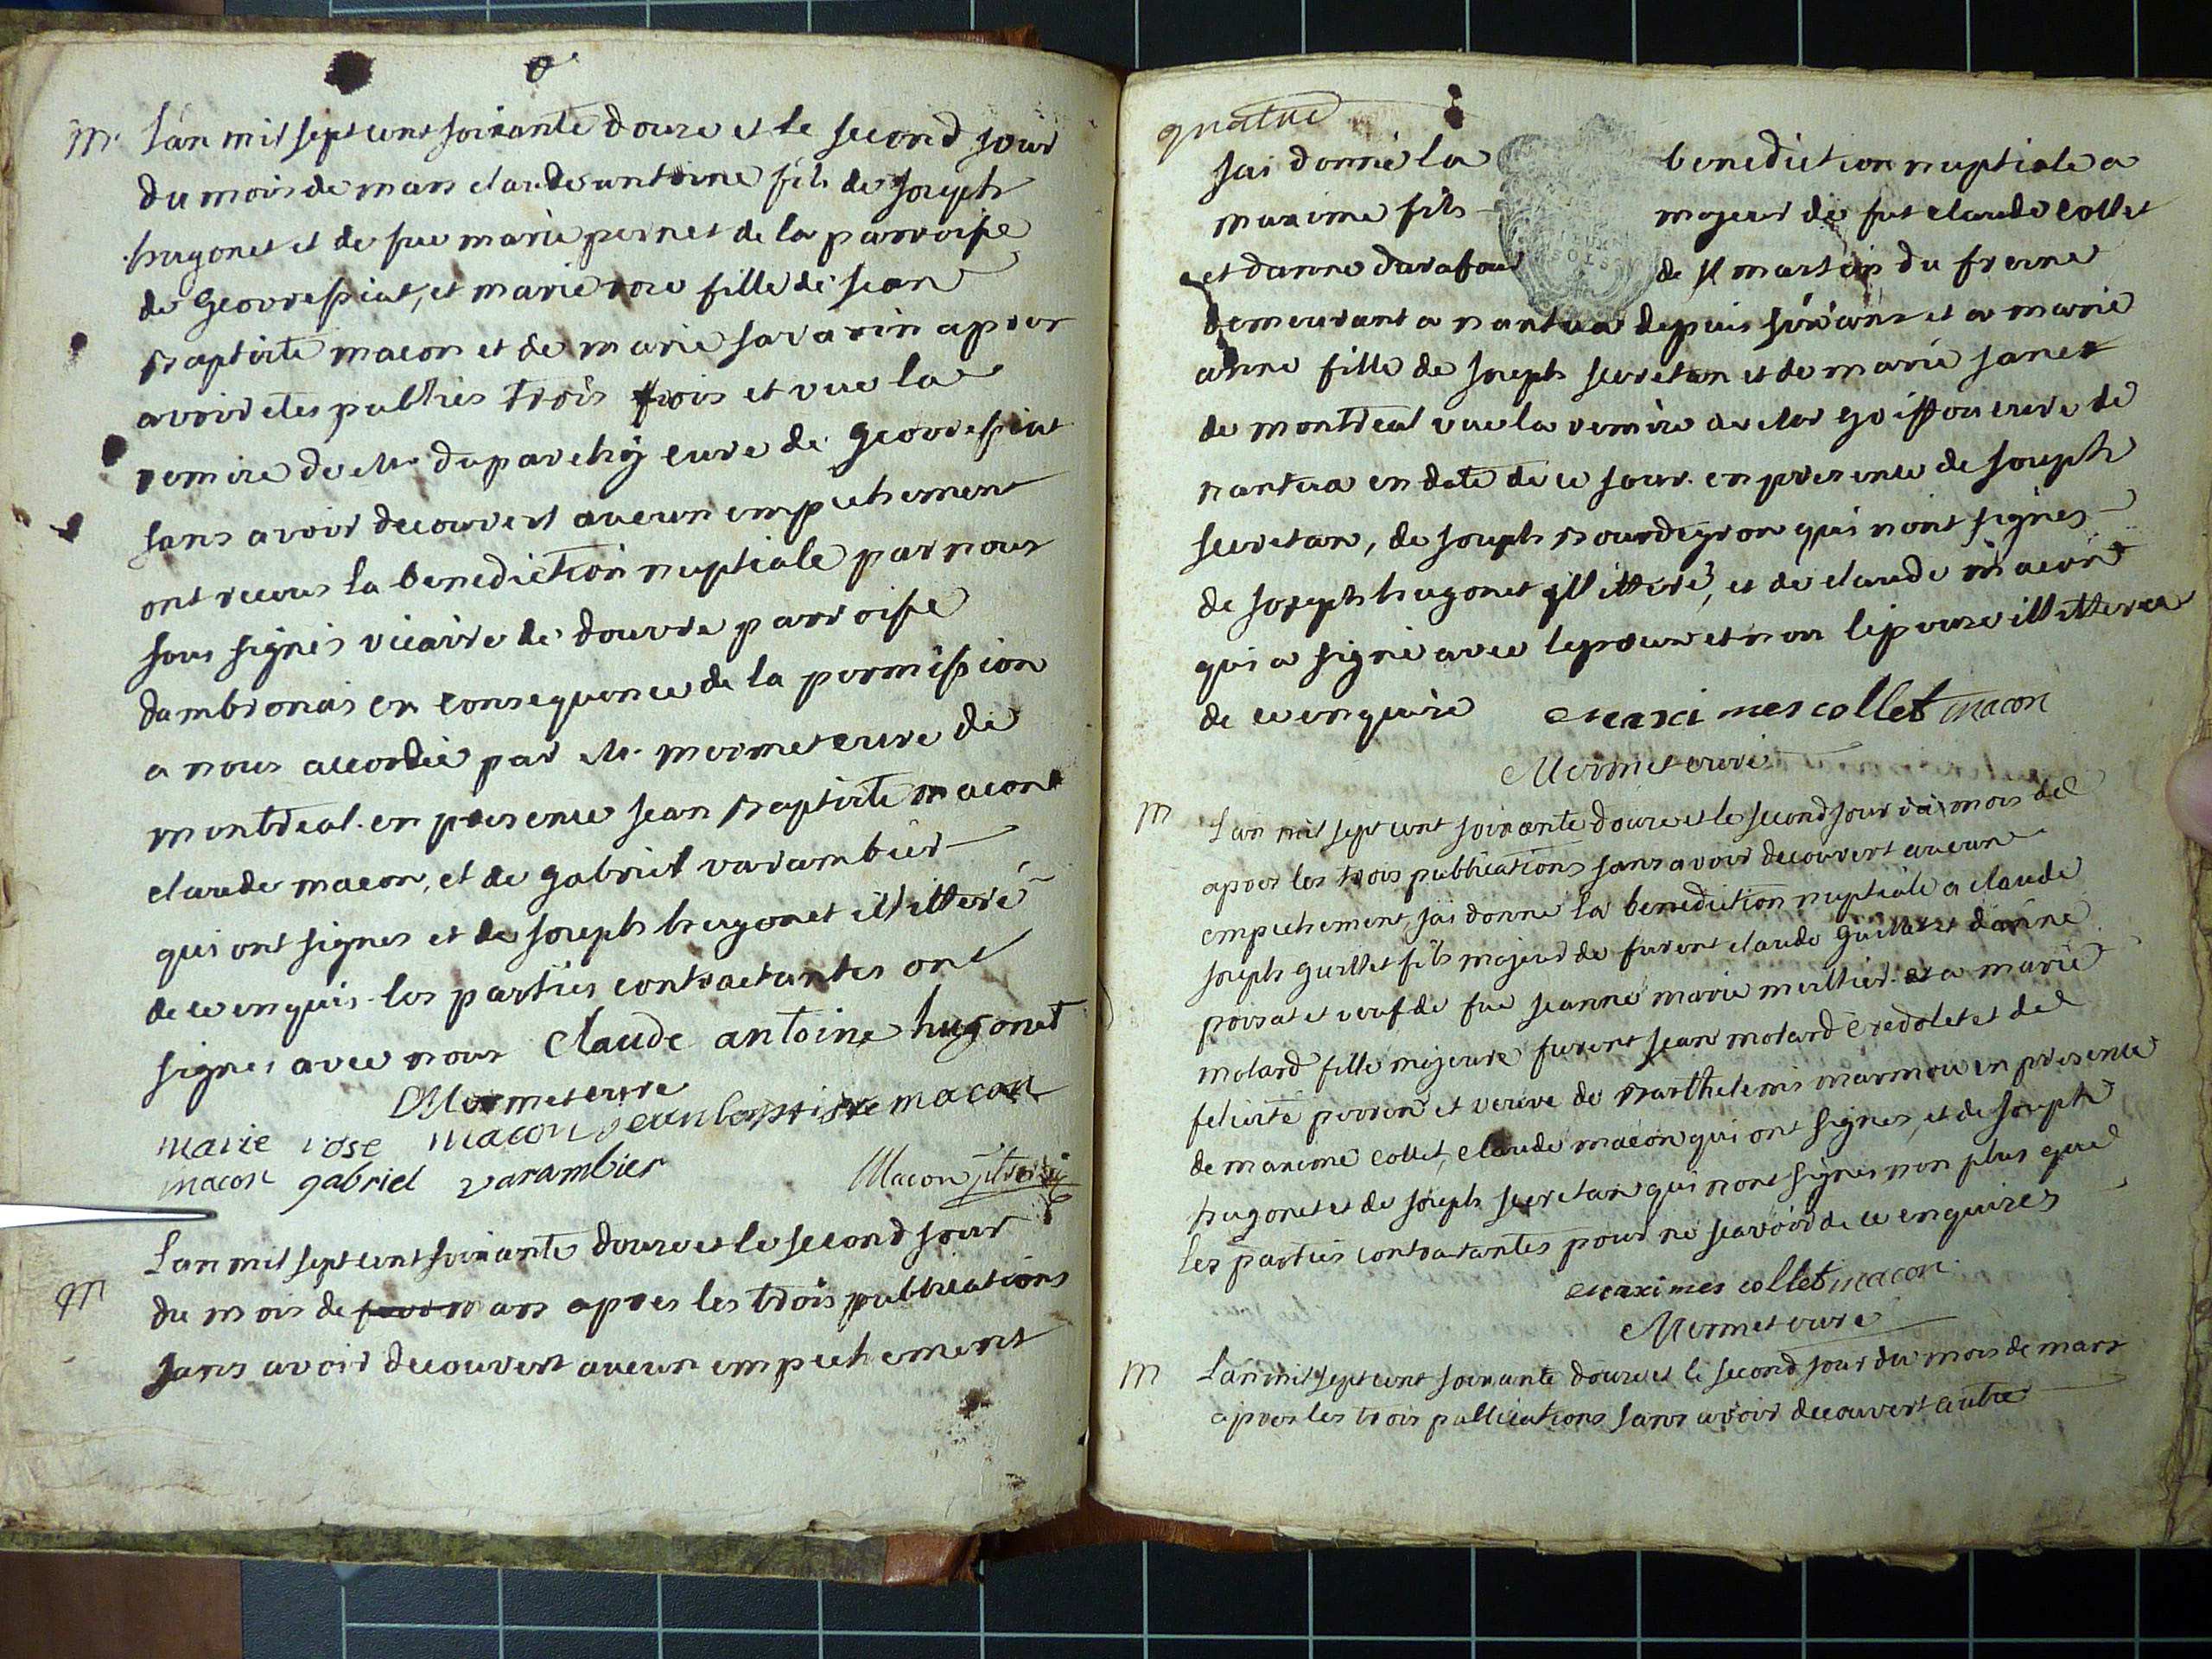 m. Lan mil sept cent soixante douze et le second jour
du mois de mars claude antoine fils de joseph
hugonet et de fue marie pernet de la parroisse
de Geovressiat, et marie rose fille de jean
Baptiste macon et de marie savarin apres
avoir etes publies trois fois et vue la
remise de Mr. duparchy cure de geovressiat
sans avoir decouvert aucun empechement
ont recus la benediction nuptiale par nous
sous signes vicaire de douvre parroisse
dambronais en consequence de la permission
a nous accordée par Mr. mermet cure de
montreal. en presence jean Baptiste macon
claude macon, et de gabriel varambier
qui ont signes et de joseph hugonet illitteré
de ce enquis. les parties contractantes ont
signes avec nous Claude antoine hugonet
Mermet cure
marie rose macon jean baptiste macon
macon gabriel varambier Macon
m Lan mil sept cent soixante douze et le second jour
du mois de mars apres les trois publications
sans avoir decouvert aucun empechement
quatre
jai donné la benediction nuptiale a
maxime fils majeur de fut claude collet
et danne darafour de st martin du fresne
demeurant a nantua depuis six ans et a marie
anne fille de joseph secretan et de marie janet
de montreal vue la remise de Mr goiffon cure de
nantua en date de ce jour. en presence de joseph
secretan, de joseph Bourdeyron qui nont signes
de joseph hugonet illitteré, et de claude macon
qui a signé avec lepoux et non lepouse illitteree
de ce enquise maximes collet macon
Mermet curé
m Lan mil sept cent soixante douze et le second jour du mois de
apres les trois publications sans avoir decouvert aucun
empechement, jai donné la benediction nuptiale a claude
joseph guillet fils majeur de furent claude Guillet et danne
poizat et veuf de fue jeanne marie meillier et a marie
molard fille majeure furent jean molard credolet et de
felicité perren et veuve de Barthelemi marmou en presence
de maxime collet, claude macon qui ont signes, et de joseph
hugonet et de joseph secretan qui nont signes non plus que
les parties contratantes pour ne scavoir de ce enquises
maximes collet macon
Mermet curé
m Lan mil sept cent soixante douze et le second jour du mois de mars
apres les trois publications sans avoir decouvert autre